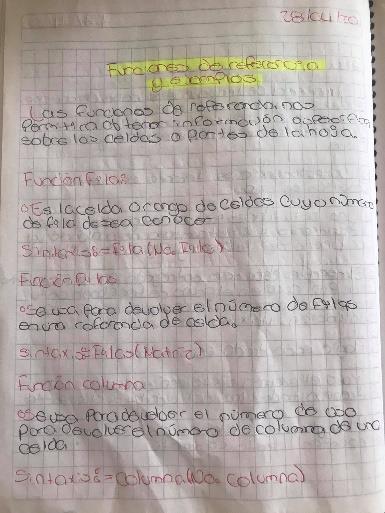 28/04/20
Funciones de referencia
y ejemplos
Las funciones de referencia nos
permitira obtener información especifica
sobre las celdas o partes de la hoja.
Función Filas
Es la celda o rango de celdas cuyo número
de fila desea conocer
Sintaxis = Fila (No. Fila)
Función Filas
Se usa para devolver el número de filas
en una referencia de celda.
Sintaxis = Filas (Matriz)
Función columna
Se usa para devolver el número de uso
para devolver el número de columna de una
celda
Sintaxis = Columna (No. Columna)